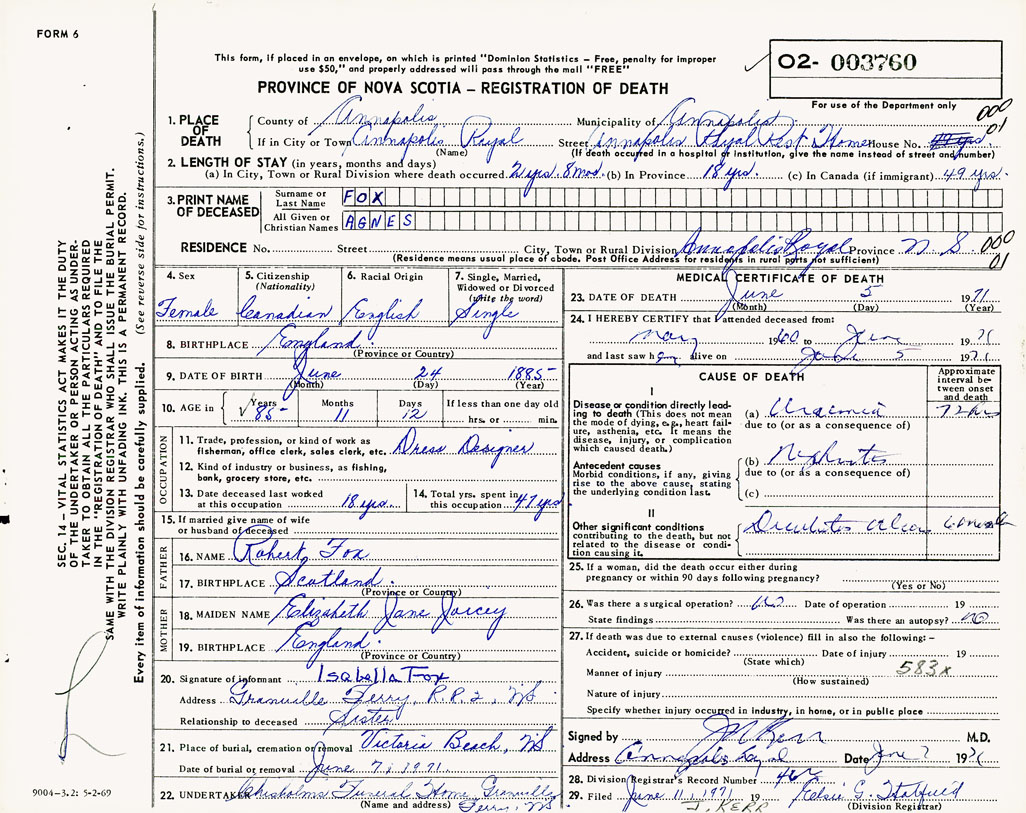 FORM 6
This form, if placed in an envelope, on which is printed "Dominion Statistics – Free, penalty for improper
use $50," and properly addressed will pass through the mail "FREE"
O2- 003760
For use of the Department only
PROVINCE OF NOVA SCOTIA – REGISTRATION OF DEATH
000
01
1. PLACE OF DEATH
County of Annapolis Municipality of Annapolis
If in City or Town Annapolis Royal Street Annapolis Royal Rest Home House No.
(Name) (If death occurred in a hospital or institution, give the name instead of street and number)
2. LENGTH OF STAY (in years, months and days)
(a) In City, Town or Rural Division where death occurred 2 yrs. 8 mos. (b) In Province 18 yrs. (c) In Canada (if immigrant) 49 yrs.
3. PRINT NAME OF DECEASED
Surname or Last Name FOX
All Given or Christian Names AGNES
RESIDENCE No. Street City, Town or Rural Division Annapolis Royal Province N. S. 000
01
(Residence means usual place of abode. Post Office Address for residents in rural parts not sufficient)
4. Sex
Female
5. Citizenship
(Nationality)
Canadian
6. Racial Origin
English
7. Single, Married,
Widowed or Divorced
(write the word)
Single
8. BIRTHPLACE England
(Province or Country)
9. DATE OF BIRTH June 24 1885
(Month) (Day) (Year)
10. AGE in Years 85 Months 11 Days 12 If less than one day old
hrs. or min.
OCCUPATION
11. Trade, profession, or kind of work as
fisherman, office clerk, sales clerk, etc. Dress Designer
12. Kind of industry or business, as fishing,
bank, grocery store, etc.
13. Date deceased last worked
at this occupation 18 yrs.
14. Total yrs. spent in
this occupation 47 yrs
15. If married give name of wife
or husband of deceased
FATHER
16. NAME Robert Fox
17. BIRTHPLACE Scotland.
(Province or Country)
MOTHER
18. MAIDEN NAME Elizabeth Jane
19. BIRTHPLACE England
(Province or Country)
20. Signature of informant Isabella Fox
Address Granville Ferry, R.R.2, NS
Relationship to deceased Sister
21. Place of burial, cremation or removal Victoria Beach, NS
Date of burial or removal June 7, 1971
22. UNDERTAKER Chisholms Funeral Home Granville
(Name and address) Ferry, NS
MEDICAL CERTIFICATE OF DEATH
23. DATE OF DEATH June 5 1971
(Month) (Day) (Year)
24. I HEREBY CERTIFY that I attended deceased from:
1960 to June 1971
and last saw her alive on June 5 1971
CAUSE OF DEATH
Approximate
interval be-
tween onset
and death
I
Disease or condition directly lead-
ing to death (This does not mean
the mode of dying, e.g., heart fail-
ure, asthenia, etc. It means the
disease, injury, or complication
which caused death.)
(a) Uraemia 72 hrs
due to (or as a consequence of)
Antecedent causes
Morbid conditions, if any, giving
rise to the above cause, stating
the underlying condition last.
(b) Nephritis
due to (or as a consequence of)
(c)
II
Other significant conditions
contributing to the death, but not
related to the disease or condi-
tion causing it.
Decubitus ulcer 6 months
25. If a woman, did the death occur either during
pregnancy or within 90 days following pregnancy?
(Yes or No)
26. Was there a surgical operation? no Date of operation 19
State findings Was there an autopsy? no
27. If death was due to external causes (violence) fill in also the following: –
Accident, suicide or homicide? Date of injury 19
(State which)
Manner of injury 583x
(How sustained)
Nature of injury
Specify whether injury occurred in industry, in home, or in public place
Signed by J M Kerr M.D.
Address Annapolis Royal Date June 7 1971
28. Division Registrar's Record Number
29. Filed June 11, 1971 19 Elsie G. Hatfield
J. KERR (Division Registrar)
SEC. 14 – VITAL STATISTICS ACT MAKES IT THE DUTY
OF THE UNDERTAKER OR PERSON ACTING AS UNDER-
TAKER TO OBTAIN ALL THE PARTICULARS REQUIRED
IN THE "REGISTRATION OF DEATH" AND TO FILE THE
SAME WITH THE DIVISION REGISTRAR WHO SHALL ISSUE THE BURIAL PERMIT.
WRITE PLAINLY WITH UNFADING INK. THIS IS A PERMANENT RECORD.
Every item of information should be carefully supplied. (See reverse side for instructions.)
9004-3.2: 5-2-69